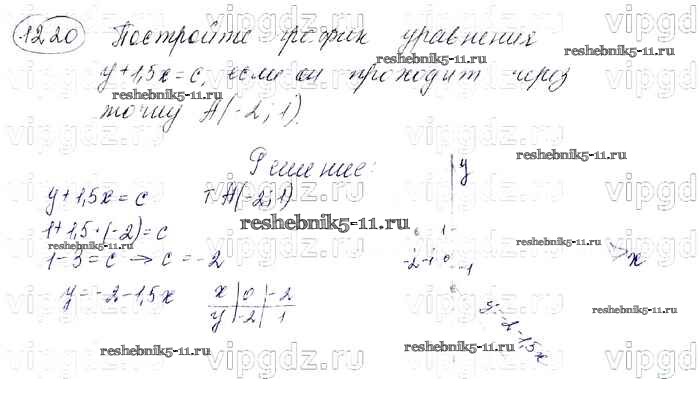 1220 Постройте график уравнения
y+1,5x=c, если он проходит через
точку A(-2;1).
Решение:
y+1,5x=c т. A(-2;1)
1+1,5·(-2)=c
1-3=c → c=-2
y=-2-1,5x
x | 0 | -2
y | -2 | 1
y
1
-2 -1 0 1
x
y=-2-1,5x
vipgdz.ru
reshebnik5-11.ru